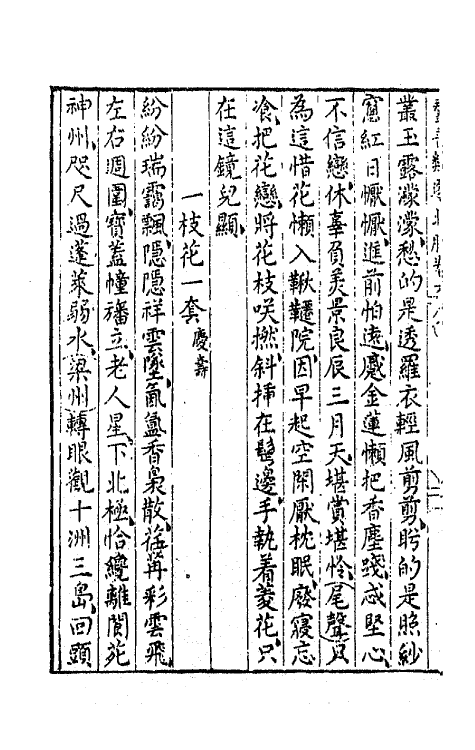 叢玉露濛濛愁的是透羅衣輕風剪剪盻的是照紗
窻紅日懨懨進前怕遠蹙金蓮懶把香塵踐忒堅心
不信戀休辜負美景良辰三月天堪賞堪怜尾聲只
為這惜花懶入鞦韆院因早起空閑厭枕眠廢寢忘
飡把花戀將花枝咲撚斜插在髩邊手執着菱花只
在這鏡兒顯
一枝花一套慶壽
紛紛瑞靄飄隱隱祥雲墜氤氳香裊散彩雲飛
左右週圍寶蓋幢旛立老人星下北極恰纔離閬苑
神州咫尺過蓬萊弱水梁州轉眼觀十洲三島回頭